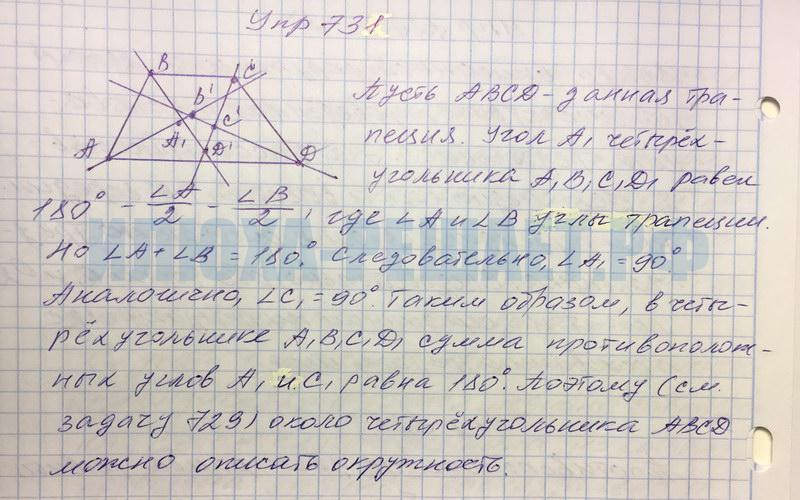 Упр 731
B
C
B¹
C¹
A₁
D¹
A
D
Пусть ABCD - данная тра-
пеция. Угол A₁ четырёх-
угольника A₁B₁C₁D₁ равен
180° - ∠A/2 - ∠B/2, где ∠A и ∠B углы трапеции.
Но ∠A + ∠B = 180°. Следовательно, ∠A₁ = 90°.
Аналогично, ∠C₁ = 90°. Таким образом, в четы-
рёхугольнике A₁B₁C₁D₁ сумма противополож-
ных углов A₁ и C₁ равна 180°. Поэтому (см.
задачу 729) около четырёхугольника ABCD
можно описать окружность.